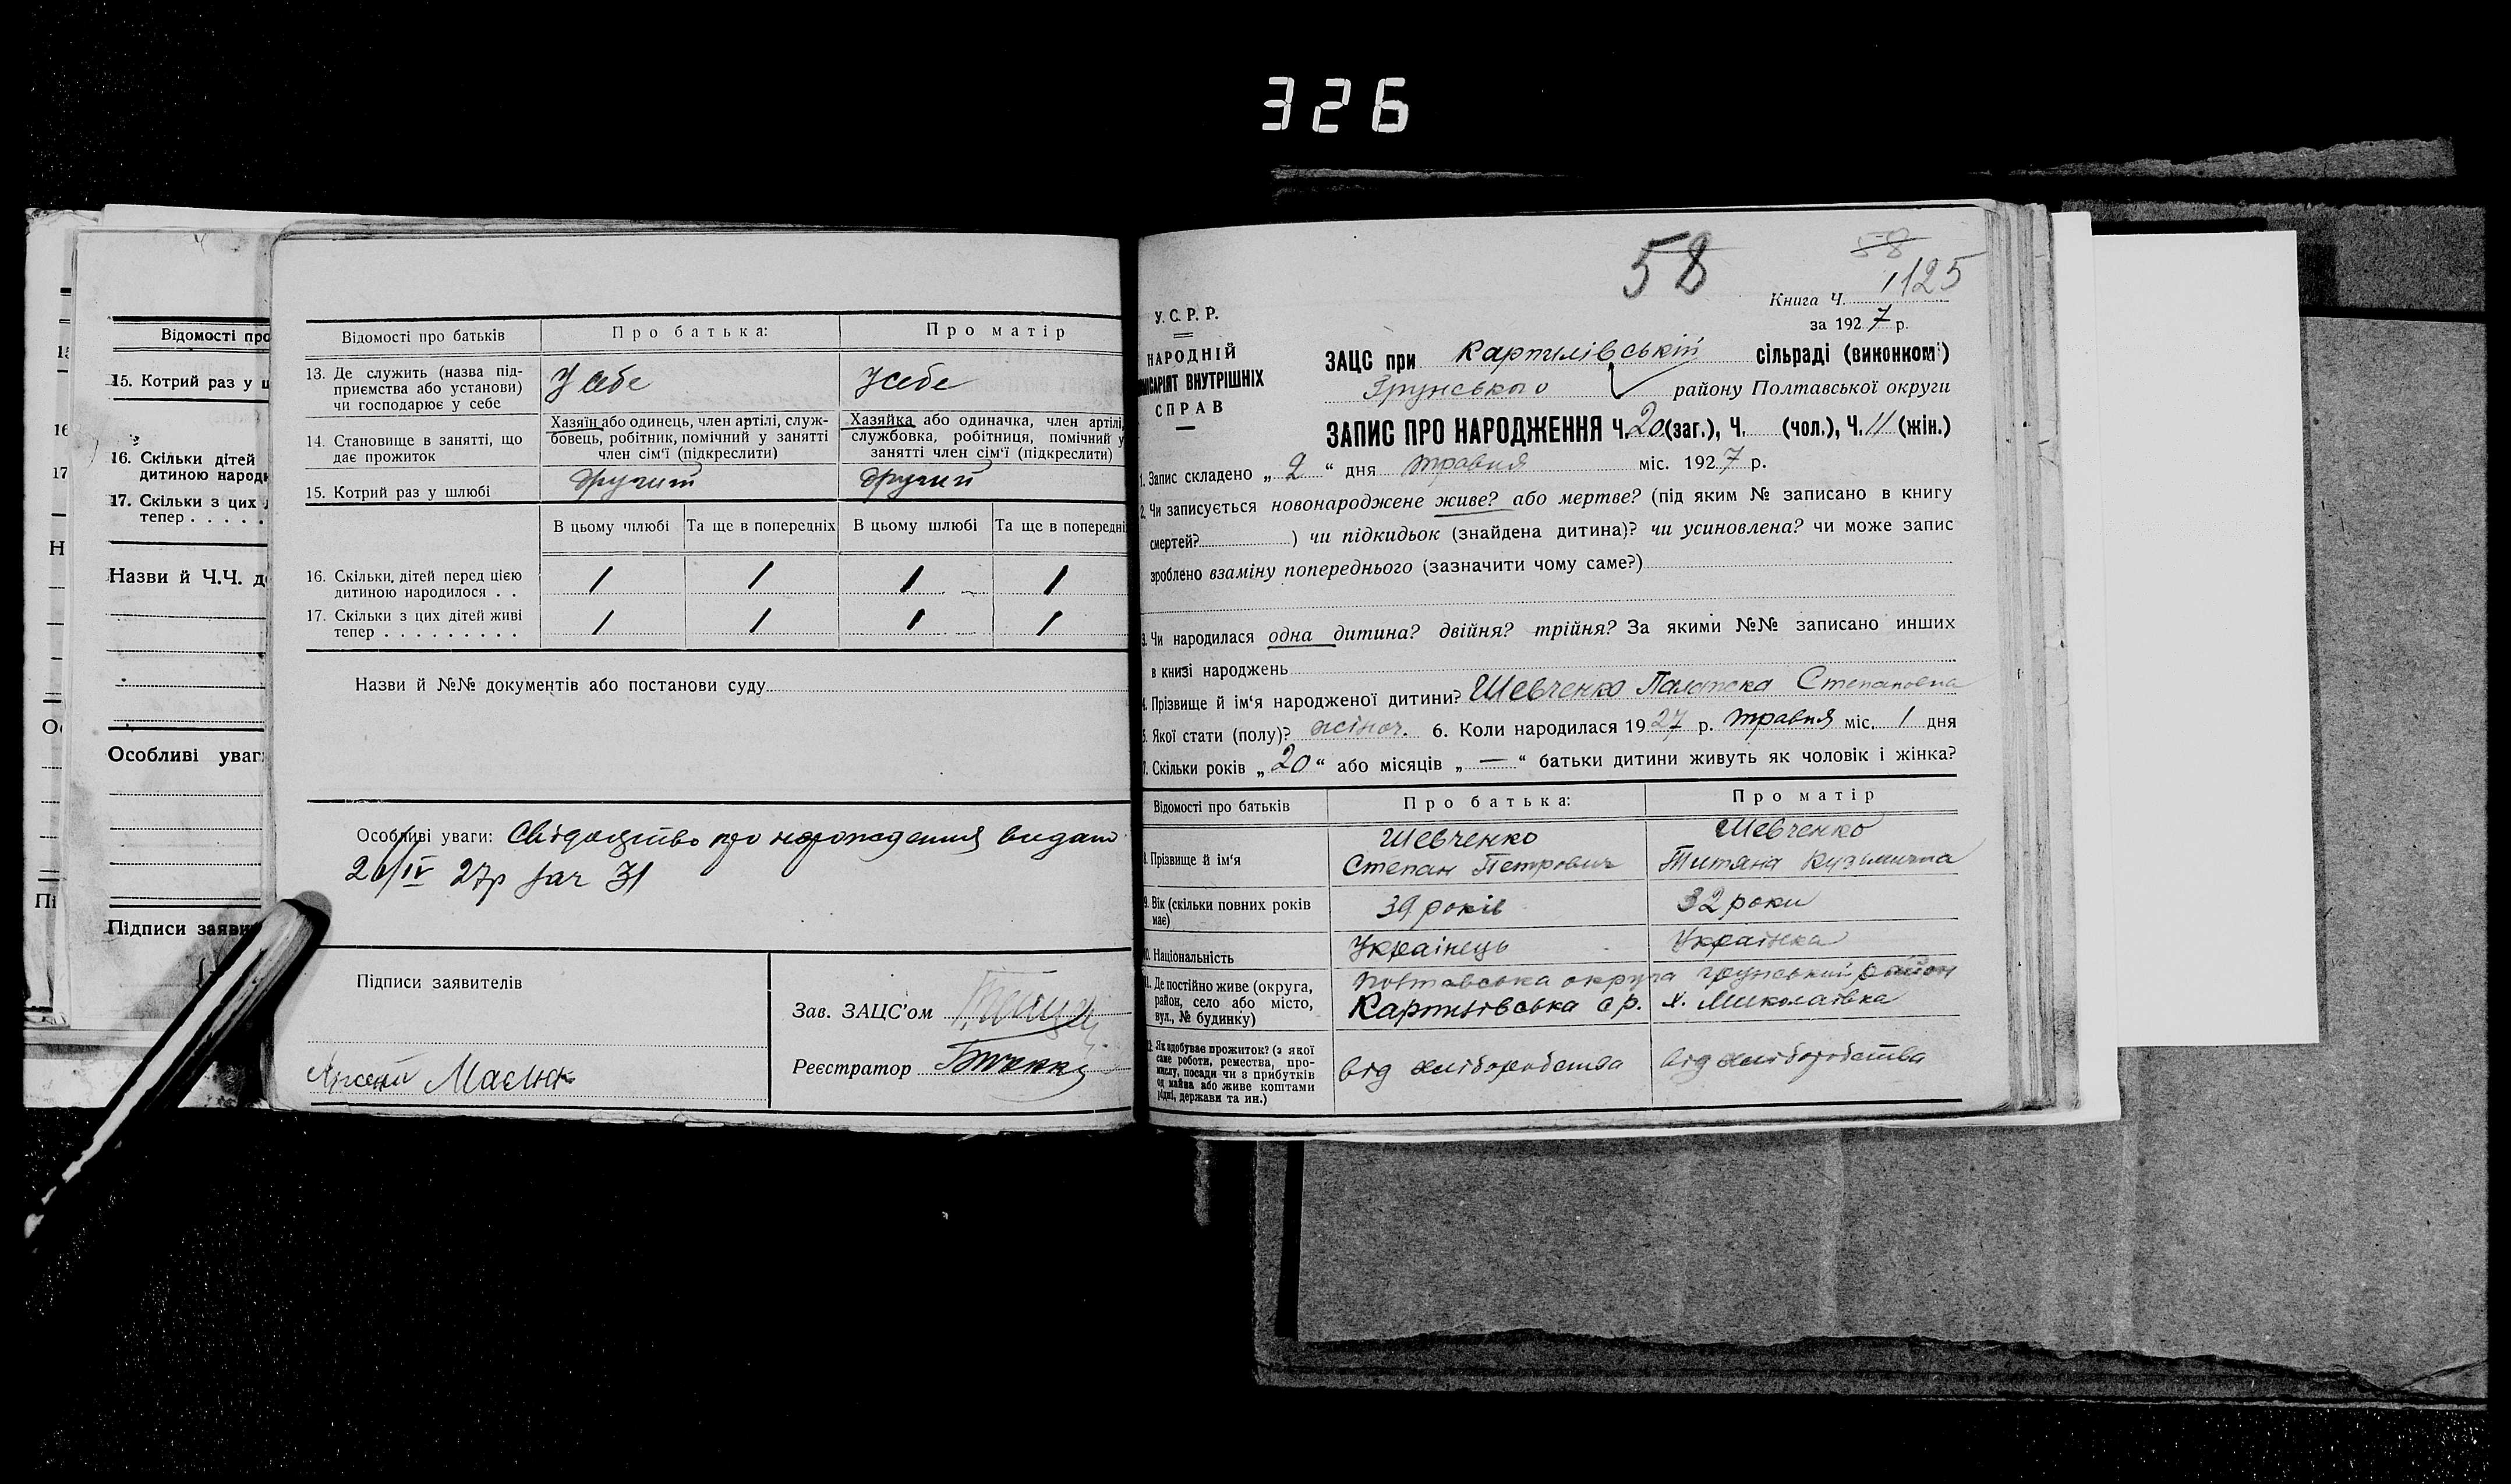 326
Відомості про
15. Котрий раз у ш
16. Скільки дітей
дитиною народи
17. Скільки з цих
тепер . . . . .
Назви й Ч.Ч. д
Особливі уваг
Підписи заяви
Відомості про батьків
Про батька:
Про матір
13. Де служить (назва під-
приємства або установи)
чи господарює у себе
У себе
У себе
14. Становище в занятті, що
дає прожиток
Хазяїн або одинець, член артілі, служ-
бовець, робітник, помічний у занятті
член сім'ї (підкреслити)
Хазяйка або одиначка, член артілі,
службовка, робітниця, помічний у
занятті член сім'ї (підкреслити)
15. Котрий раз у шлюбі
другий
другий
В цьому шлюбі
Та ще в попередніх
В цьому шлюбі
Та ще в попередні
16. Скільки, дітей перед цією
дитиною народилося . .
1 1 1 1
17. Скільки з цих дітей живі
тепер . . . . . . . . .
1 1 1 1
Назви й №№ документів або постанови суду
Особливі уваги: Свідоцтво про народження видано
27р 31
Підписи заявителів
Зав. ЗАЦС'ом
Реєстратор
58
58
1125
Книга Ч.
за 1927 р.
У.С.Р.Р.
НАРОДНІЙ
МІСАРІЯТ ВНУТРІШНІХ
СПРАВ
ЗАЦС при Картилівській сільраді (виконком)
Грунського району Полтавської округи
ЗАПИС ПРО НАРОДЖЕННЯ Ч. 20 (заг.), Ч. (чол.), Ч. 11 (жін.)
1. Запис складено „ 2 “ дня травня міс. 1927 р.
2. Чи записується новонароджене живе? або мертве? (під яким № записано в книгу
смертей? ) чи підкидьок (знайдена дитина)? чи усиновлена? чи може запис
зроблено взаміну попереднього (зазначити чому саме?)
3. Чи народилася одна дитина? двійня? трійня? За якими №№ записано инших
в книзі народжень
4. Прізвище й ім'я народженої дитини? Шевченко Палажка Степановна
5. Якої стати (полу)? жіноч. 6. Коли народилася 1927 р. травня міс. 1 дня
7. Скільки років „ 20 “ або місяців „ — “ батьки дитини живуть як чоловік і жінка?
Відомості про батьків
Про батька:
Про матір
8. Прізвище й ім'я
Шевченко
Степан Петрович
Шевченко
Титяна Кузьмична
9. Вік (скільки повних років
має)
39 років
32 роки
10. Національність
Українець
Українка
11. Де постійно живе (округа,
район, село або місто,
вул., № будинку)
Полтавська округа грунський район
Картилівська с р. х. Миколаівка
12. Як здобуває прожиток? (з якої
саме роботи, ремества, про-
мислу, посади чи з прибутків
од майва або живе коштами
рідні, держави та ин.)
від хліборобства
від хліборобства